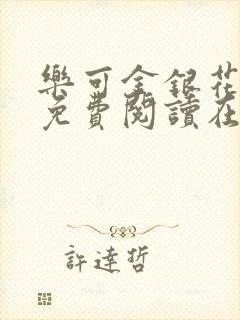 樂可金銀花
免費閱讀在
許達哲